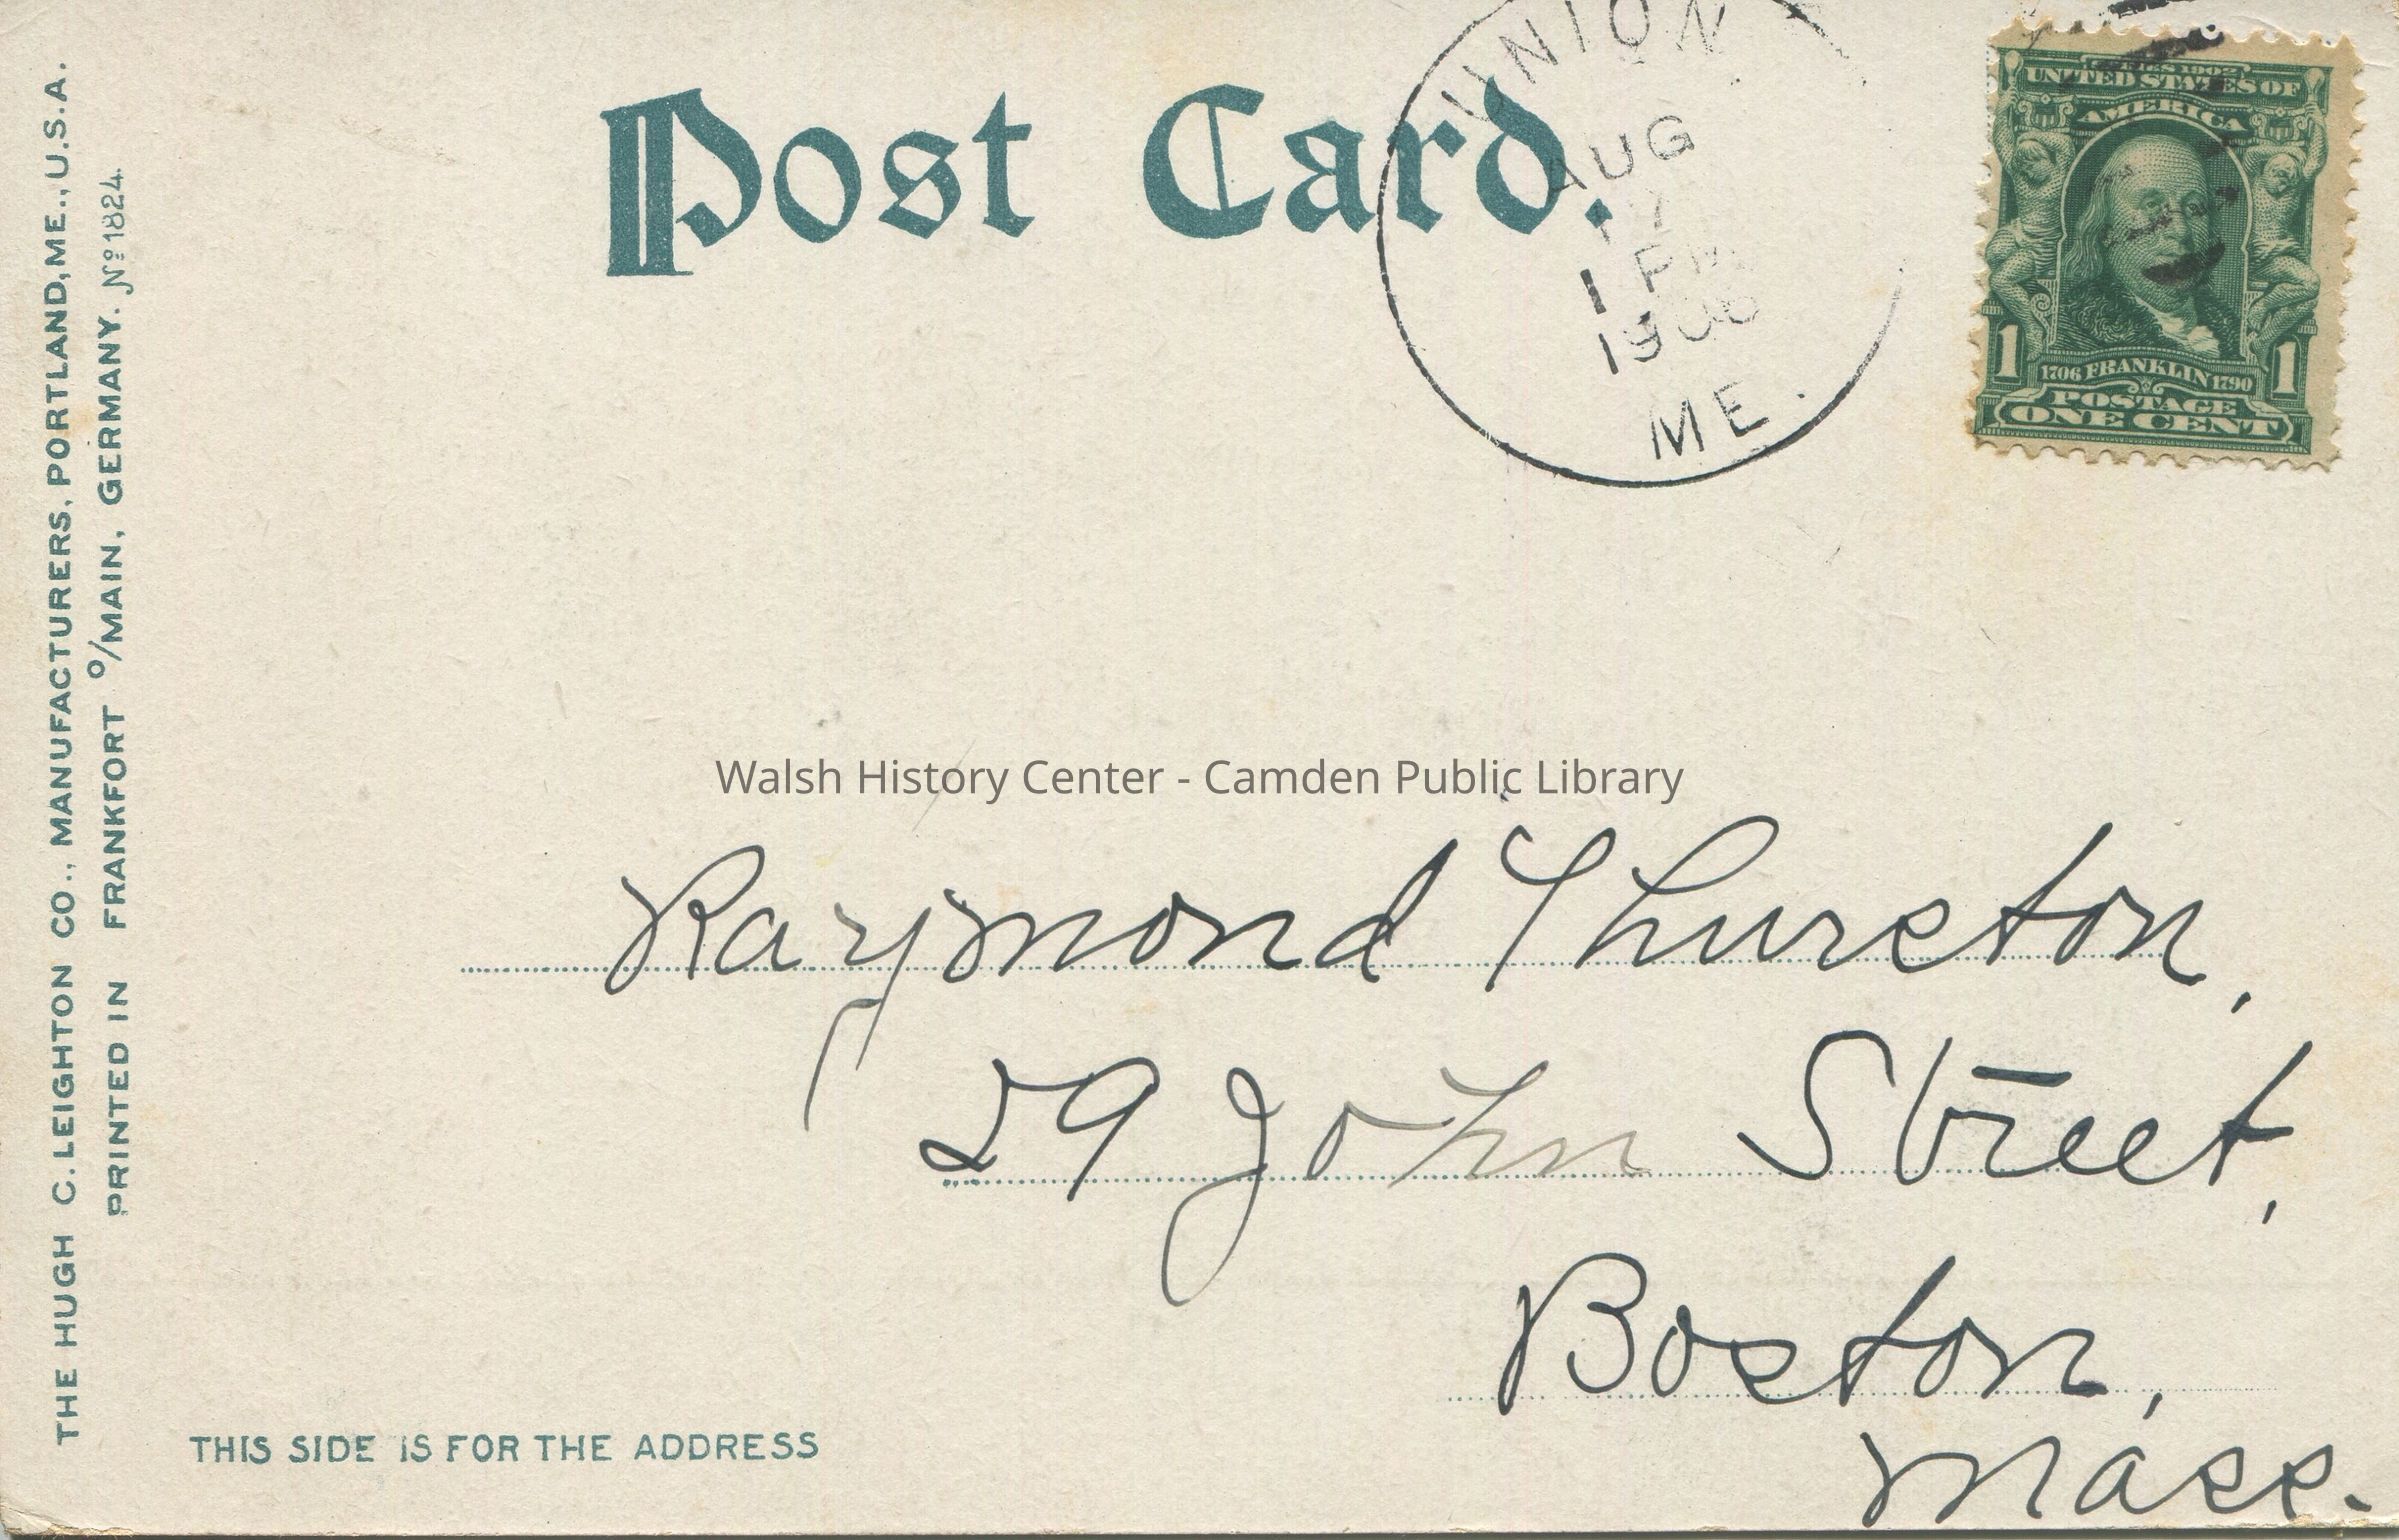 THE HUGH C. LEIGHTON CO., MANUFACTURERS, PORTLAND, ME., U.S.A.
PRINTED IN FRANKFORT o/MAIN, GERMANY. No 1824.
Post Card.
UNION
AUG
1 PM
ME.
SERIES 1902
UNITED STATES OF
AMERICA
1706 FRANKLIN 1790
1 1
POSTAGE
ONE CENT
Walsh History Center - Camden Public Library
Raymond Thurston,
29 John Street,
Boston,
Mass.
THIS SIDE IS FOR THE ADDRESS